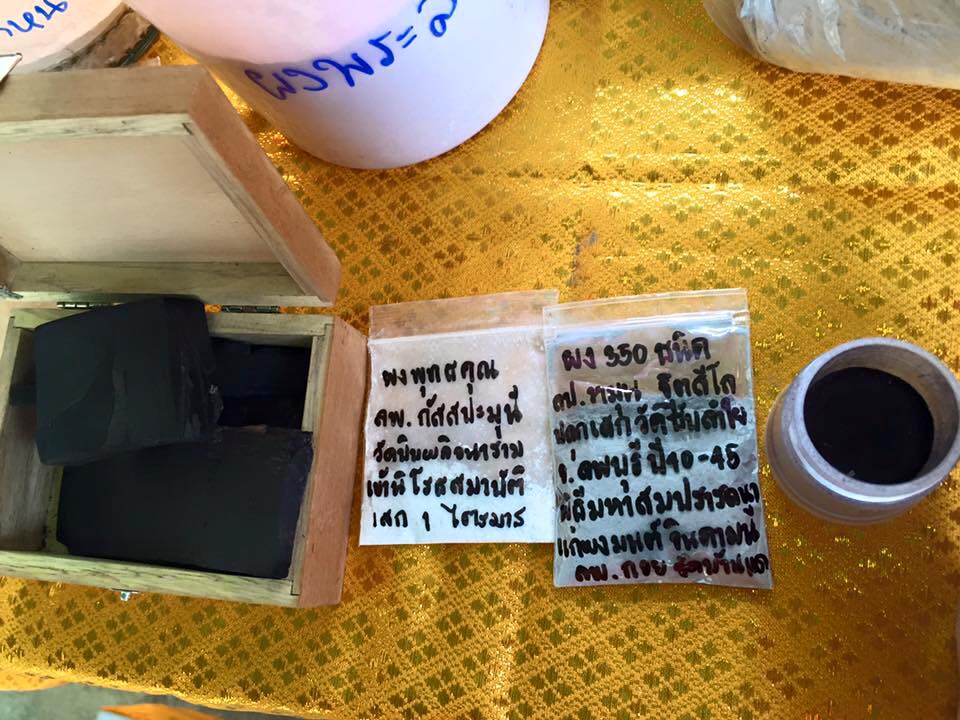 ผงพระ
ผงพุทธคุณ
ลพ. กัสสปะมุนี
วัดปิปผลิวนาราม
เข้านิโรธสมาบัติ
เสก 1 ไตรมาส
ผง 350 ชนิด
ลป. ฐิตสีโล
ปลุกเสกวัด
จ. ลพบุรี ปี 40-45
พิธีมหาสมปรารถนา
แก่ผงมนต์จินดามณี
ลพ. กวย วัดบ้านแค